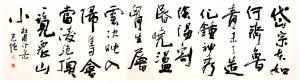 岱宗夫如
何齊魯
青未了造
化鍾神秀
陰陽割
昏曉盪
胷生層
雲決眥入
歸鳥會
當凌絕頂
一覽衆山
小